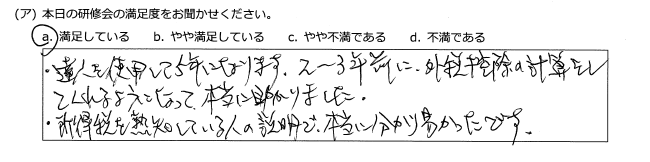 (ア) 本日の研修会の満足度をお聞かせください。
a. 満足している　b. やや満足している　c. やや不満である　d. 不満である
・達人を使用して5年になります。2〜3年前に、外税控除の計算をし
てくれるようになって、本当に助かりました。
・所得税を熟知している人の説明で、本当に分かり易かったです。